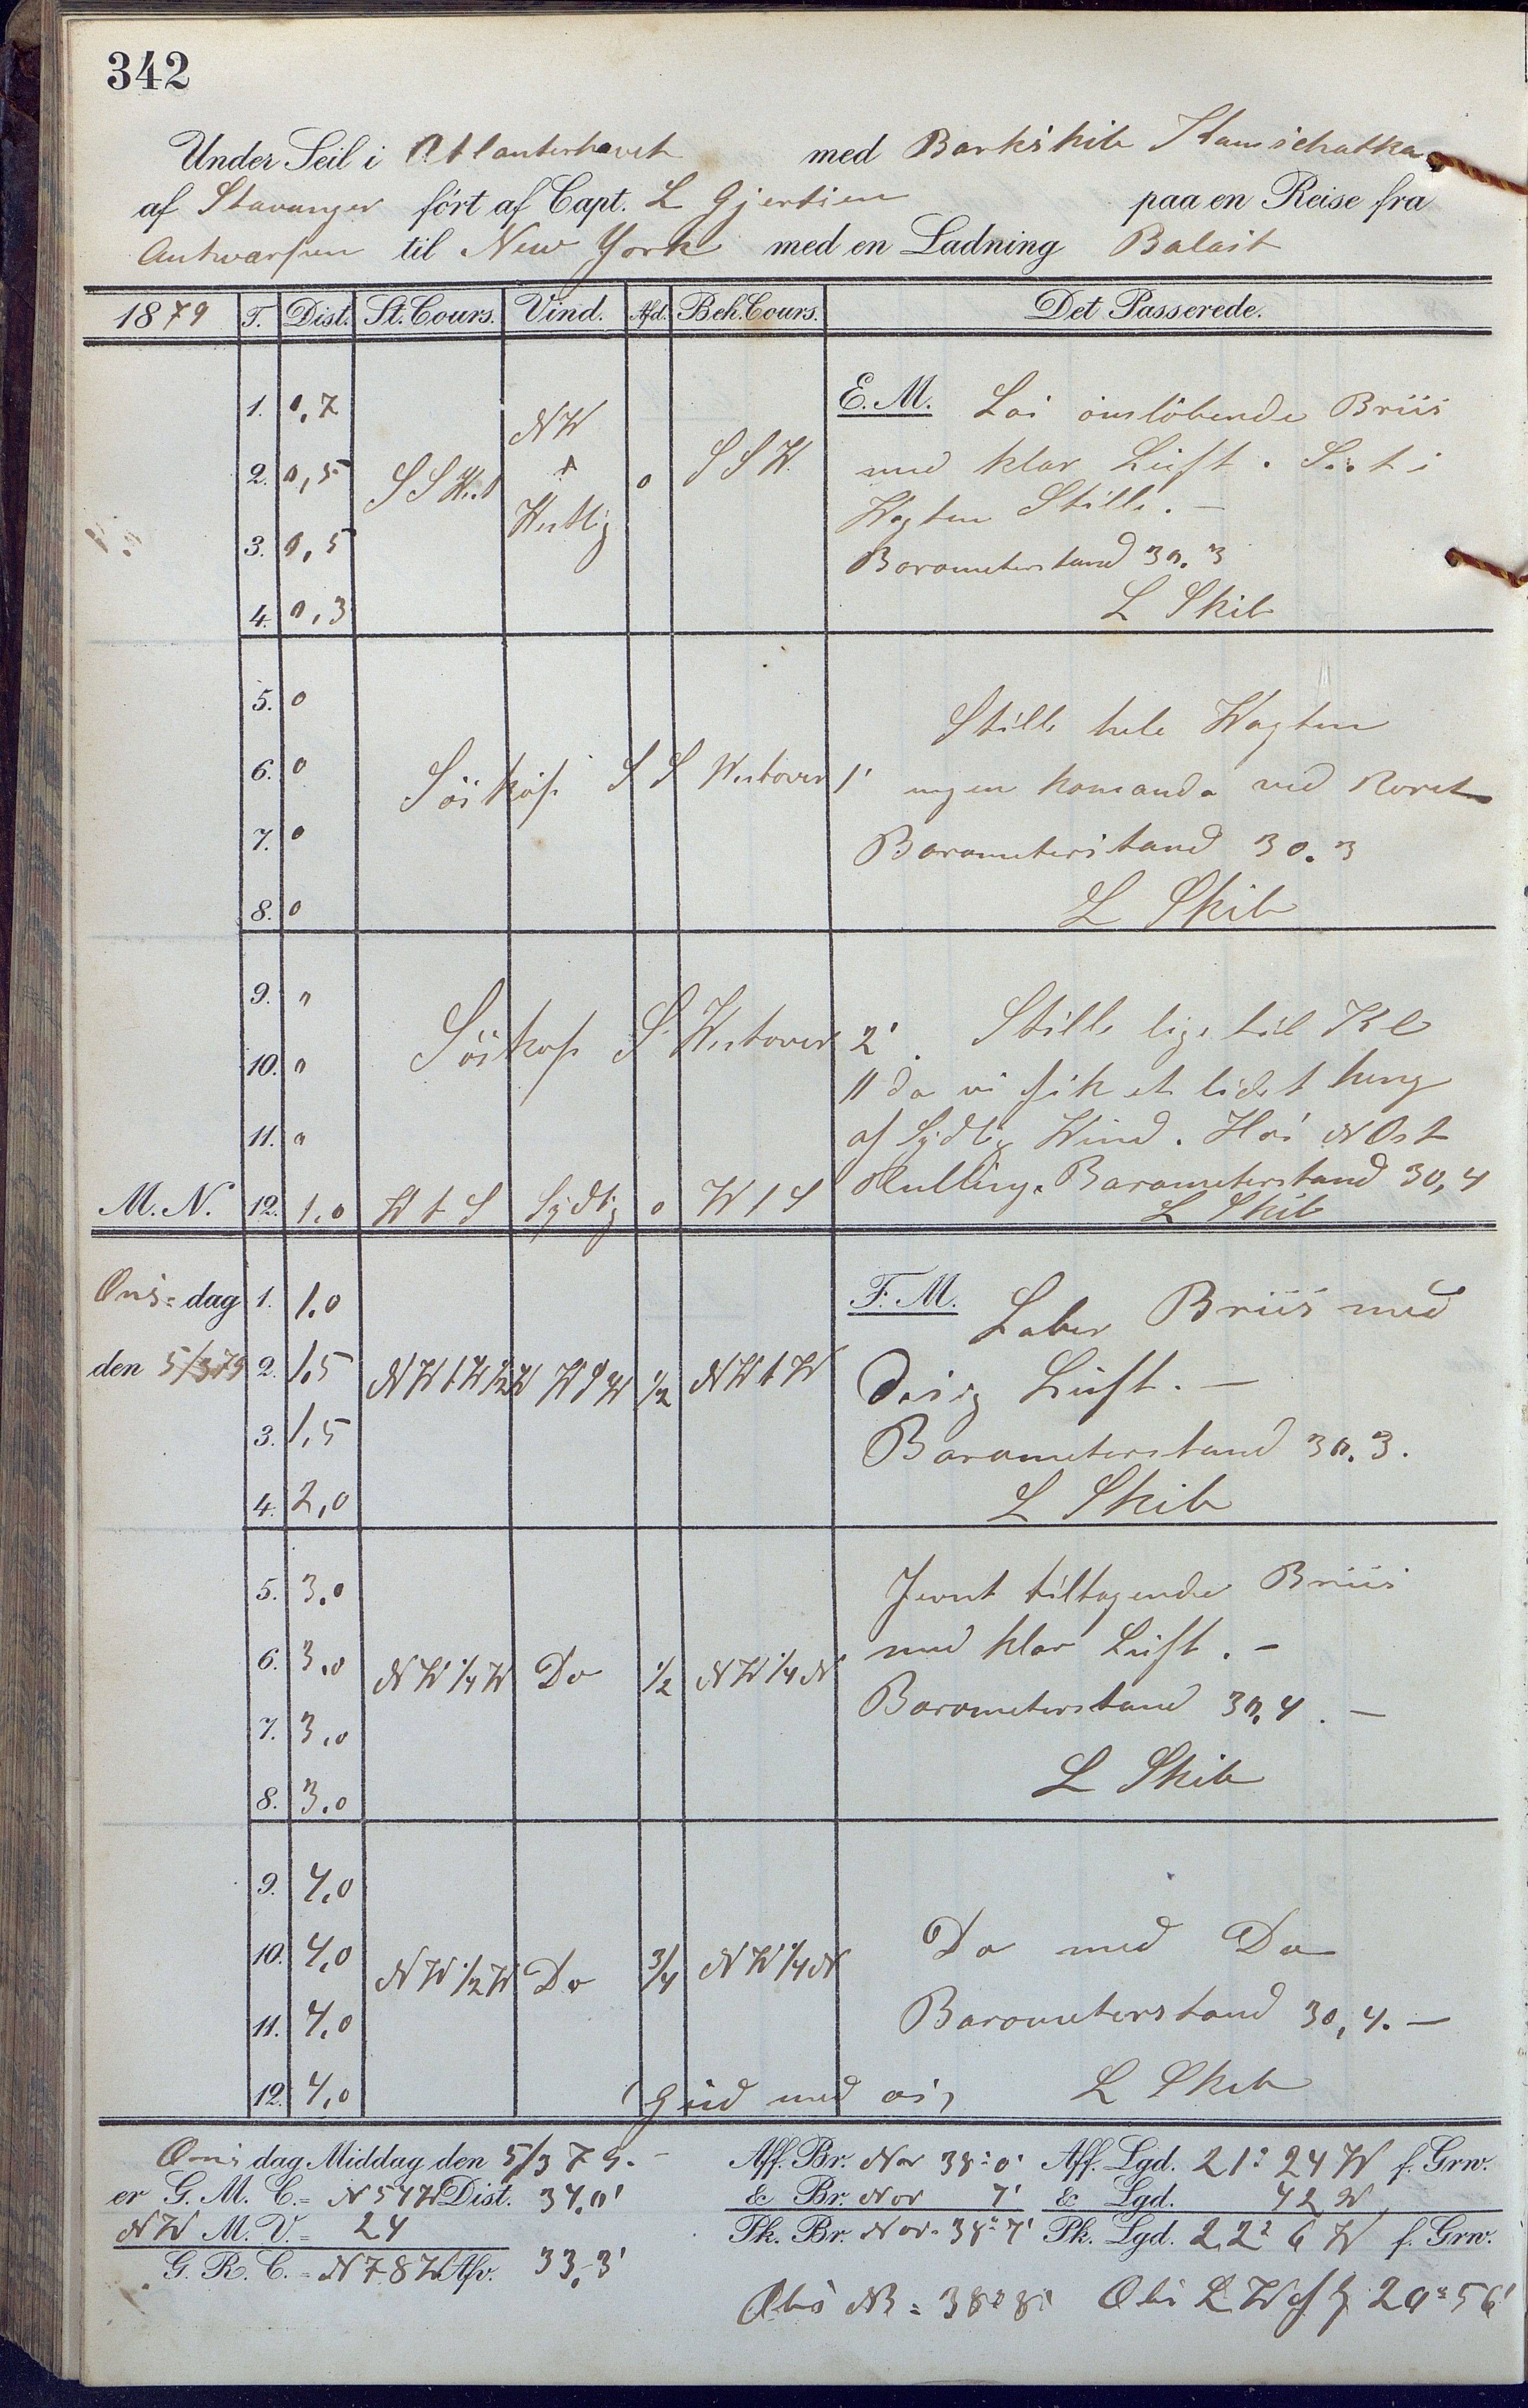 342
Under Seil i Atlanterhavet med Barkskib Kamschatka
af Stavanger ført af Capt. L Gjertsen paa en Reise fra
Antwerpen til New York med en Ladning Balast
1879 T. Dist. St. Cours. Vind. Afd. Beh. Cours. Det Passerede.
E. M. Løi Briis
1. 0,7
NW
2. 0,5 SSW 0 SSW. med klar Luft. Sist i
Vestlig Wagten Stille. –
3. 0,5
Barometerstand 30.3
4. 0,3 L Skib
5. 0
Stille hele Wagten
6. 0 S S Westover 1' ingen komando ved Roret
7. 0 Barometerstand 30.3
8. 0 L Skib
9. 0
S Westover 2'. Stille lige til Kl
10. 0
11 da vi fik et lidet
11. 0 af Sydlig Wind. Høi N Ost
Dulling. Barometerstand 30,4
M. N. 12. 1.0 W t S Sydlig 0 W t S L Skib
Ons-dag 1. 1.0 F. M. Laber Briis med
den 5/3 79 2. 1,5 NWtW1/2W 1/2 NWtW Disig Luft. –
3. 1,5 Barometerstand 30.3.
4. 2,0 L Skib
5. 3.0 Jevnt tiltagende Briis
6. 3.0 NW 1/4 W Do 1/2 NW 1/4 N med klar Luft. –
7. 3.0 Barometerstand 30,4. –
8. 3.0 L Skib
9. 4,0
10. 4,0 NW 1/2 W Do 3/4 NW 1/4 N Do med Do
11. 4,0 Barometerstand 30,4. –
12. 4,0 Gud med os, L Skib
Onsdag Middag den 5/3 79. – Aff. Br. Nor 38° 0' Aff. Lgd. 21° 24 W f. Grw.
er G. M. C. = N 54 W Dist. 34,0' & Br. Nor 7' & Lgd. 42 W
NW M. V. = 24 Pk. Br. Nor. 38° 7' Pk. Lgd. 22° 6 W f. Grw.
G. R. C. = N 78 W Afv. 33,3'
Obs NB = 38° 8' Obs L W af G 20° 56'